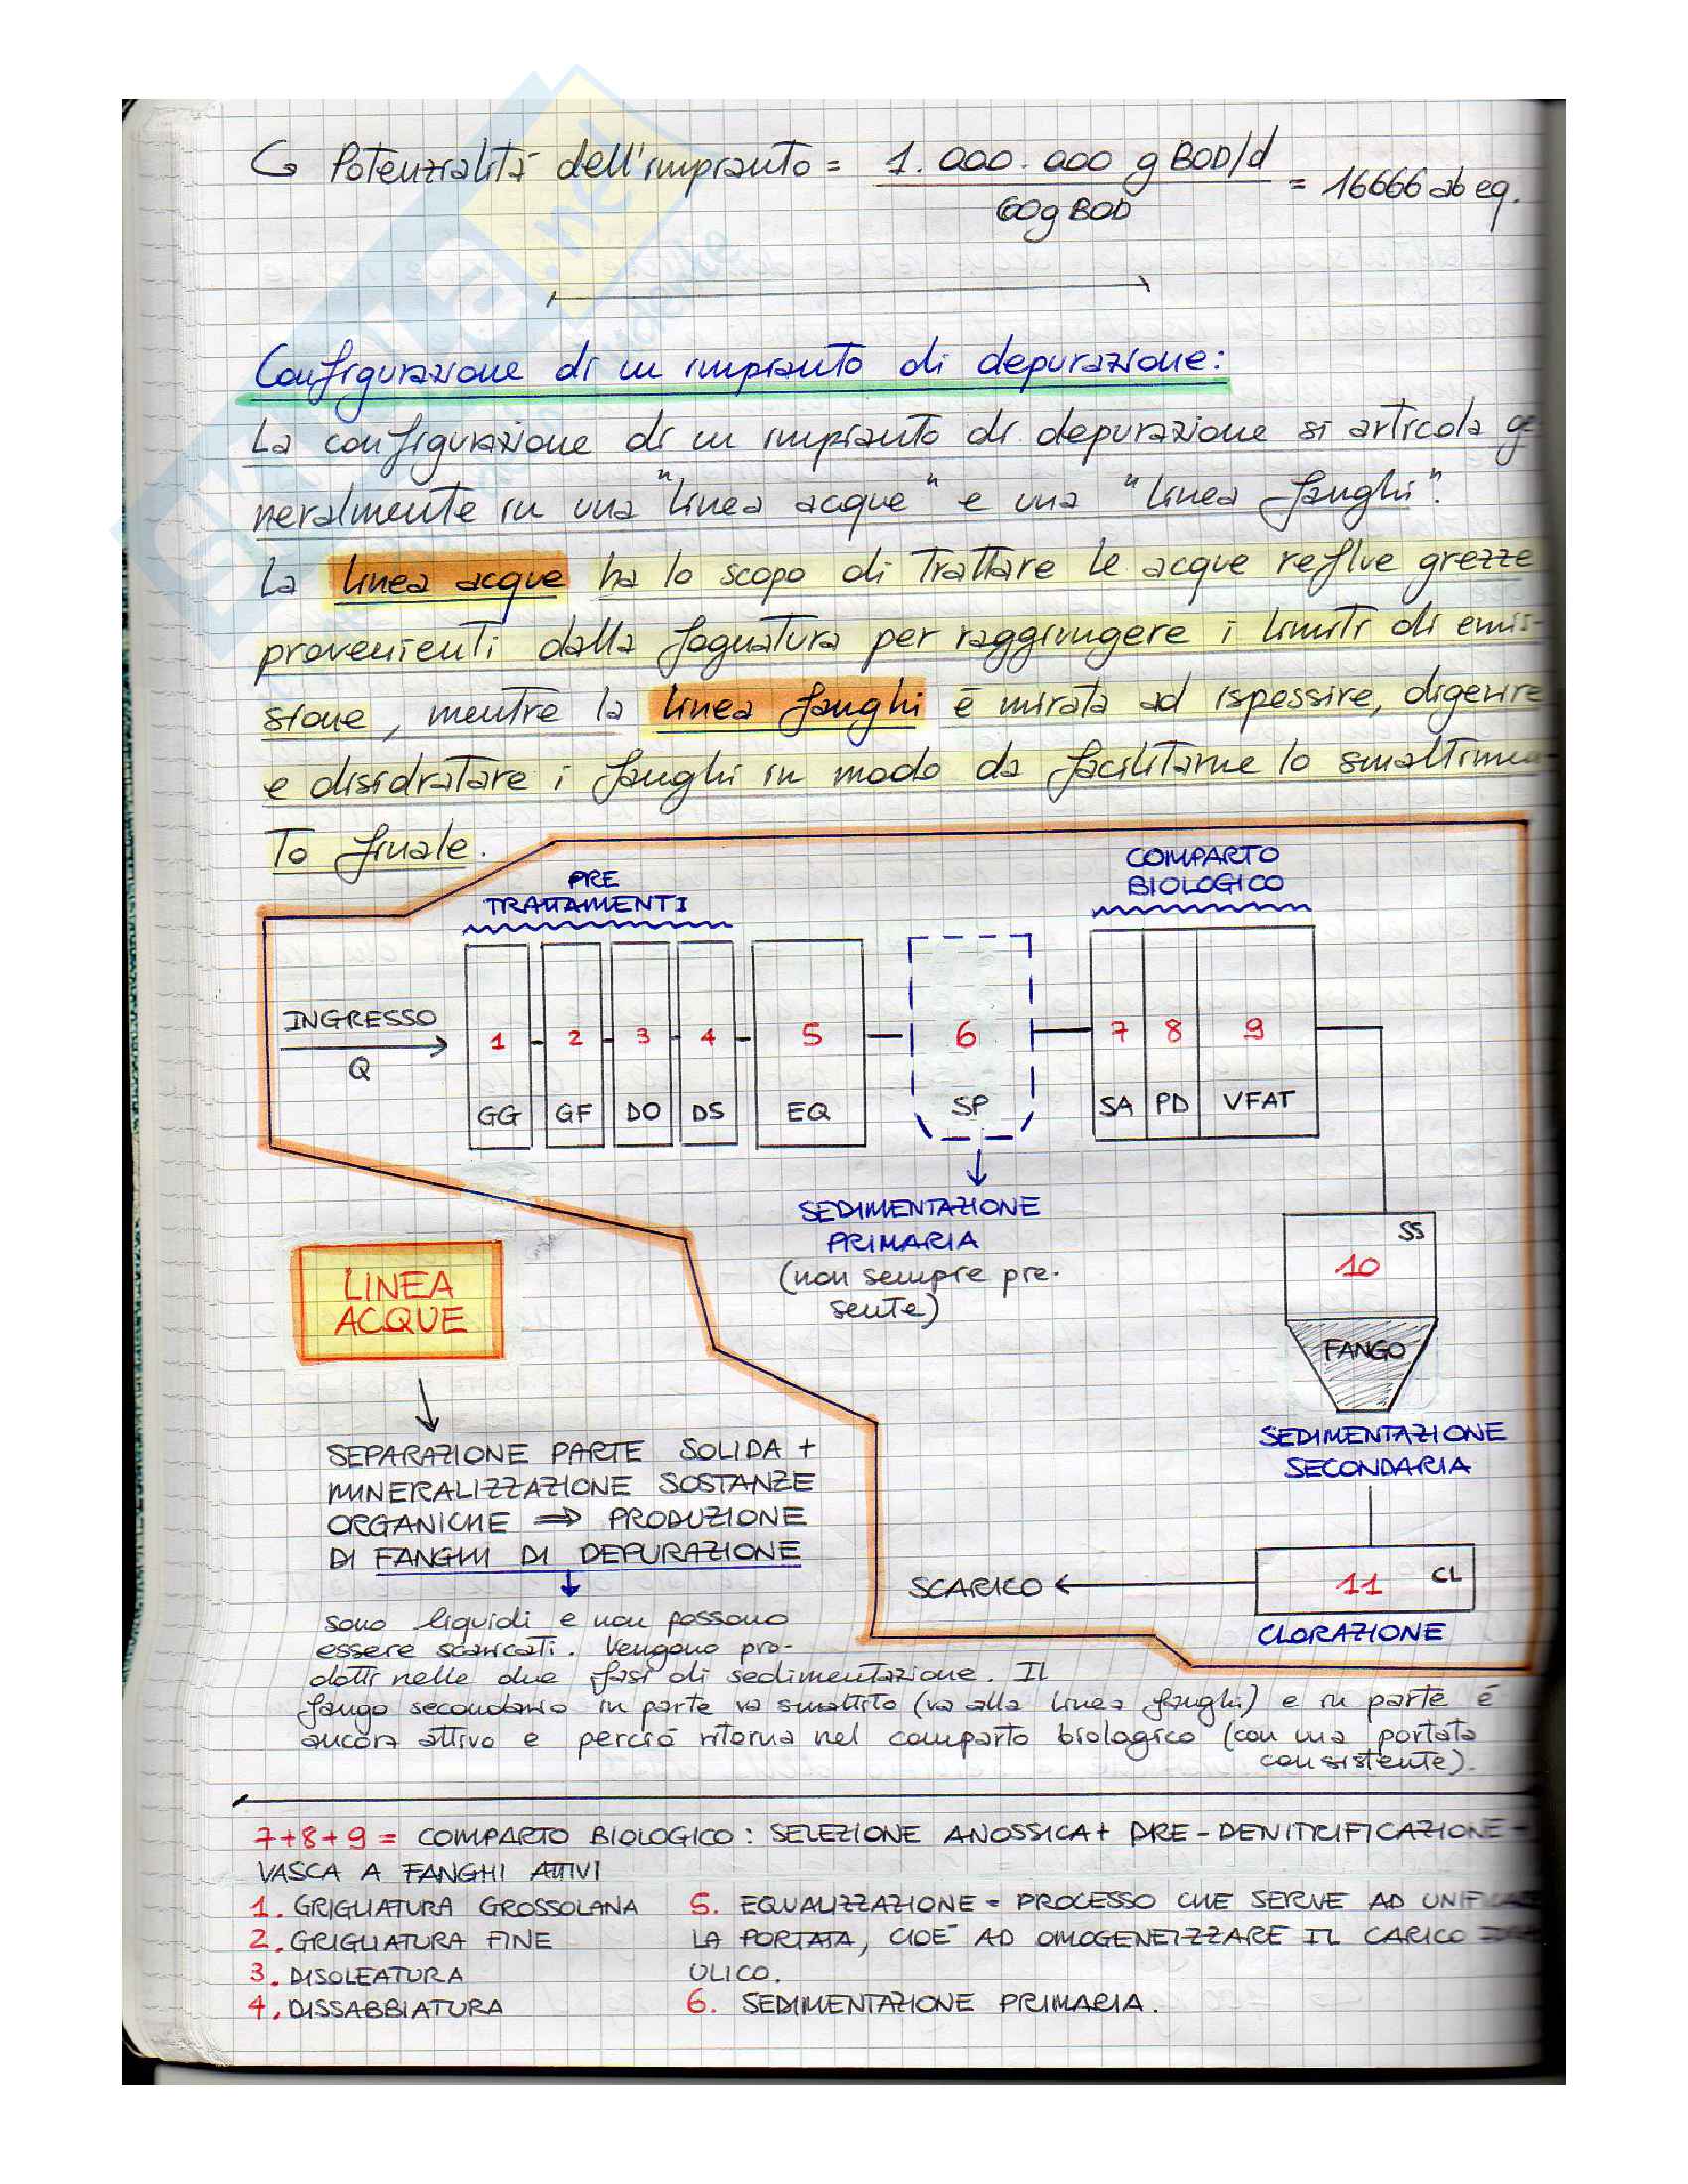 ↳ Potenzialità dell'impianto = 1.000.000 g BOD/d / 60g BOD = 16666 ab eq.
Configurazione di un impianto di depurazione:
La configurazione di un impianto di depurazione si articola ge
neralmente in una "linea acque" e una "linea fanghi".
La linea acque ha lo scopo di trattare le acque reflue grezze
provenienti dalla fognatura per raggiungere i limiti di emis-
sione, mentre la linea fanghi è mirata ad ispessire, digerire
e disidratare i fanghi in modo da facilitarne lo smaltimen-
to finale.
PRE
TRATTAMENTI
COMPARTO
BIOLOGICO
INGRESSO
Q
1 2 3 4 5 6 7 8 9
GG GF DO DS EQ SP SA PD VFAT
SEDIMENTAZIONE
PRIMARIA
(non sempre pre-
sente)
SS
10
FANGO
SEDIMENTAZIONE
SECONDARIA
11 CL
CLORAZIONE
SCARICO
LINEA
ACQUE
SEPARAZIONE PARTE SOLIDA +
MINERALIZZAZIONE SOSTANZE
ORGANICHE ⇒ PRODUZIONE
DI FANGHI DI DEPURAZIONE
sono liquidi e non possono
essere scaricati. Vengono pro-
dotti nelle due fasi di sedimentazione. Il
fango secondario in parte va smaltito (va alla linea fanghi) e in parte è
ancora attivo e perciò ritorna nel comparto biologico (con una portata
consistente).
7+8+9 = COMPARTO BIOLOGICO: SELEZIONE ANOSSICA + PRE-DENITRIFICAZIONE -
VASCA A FANGHI ATTIVI
1. GRIGLIATURA GROSSOLANA
2. GRIGLIATURA FINE
3. DISOLEATURA
4. DISSABBIATURA
5. EQUALIZZAZIONE = PROCESSO CHE SERVE AD UNIFICARE
LA PORTATA, CIOÈ AD OMOGENEIZZARE IL CARICO
ULICO.
6. SEDIMENTAZIONE PRIMARIA.